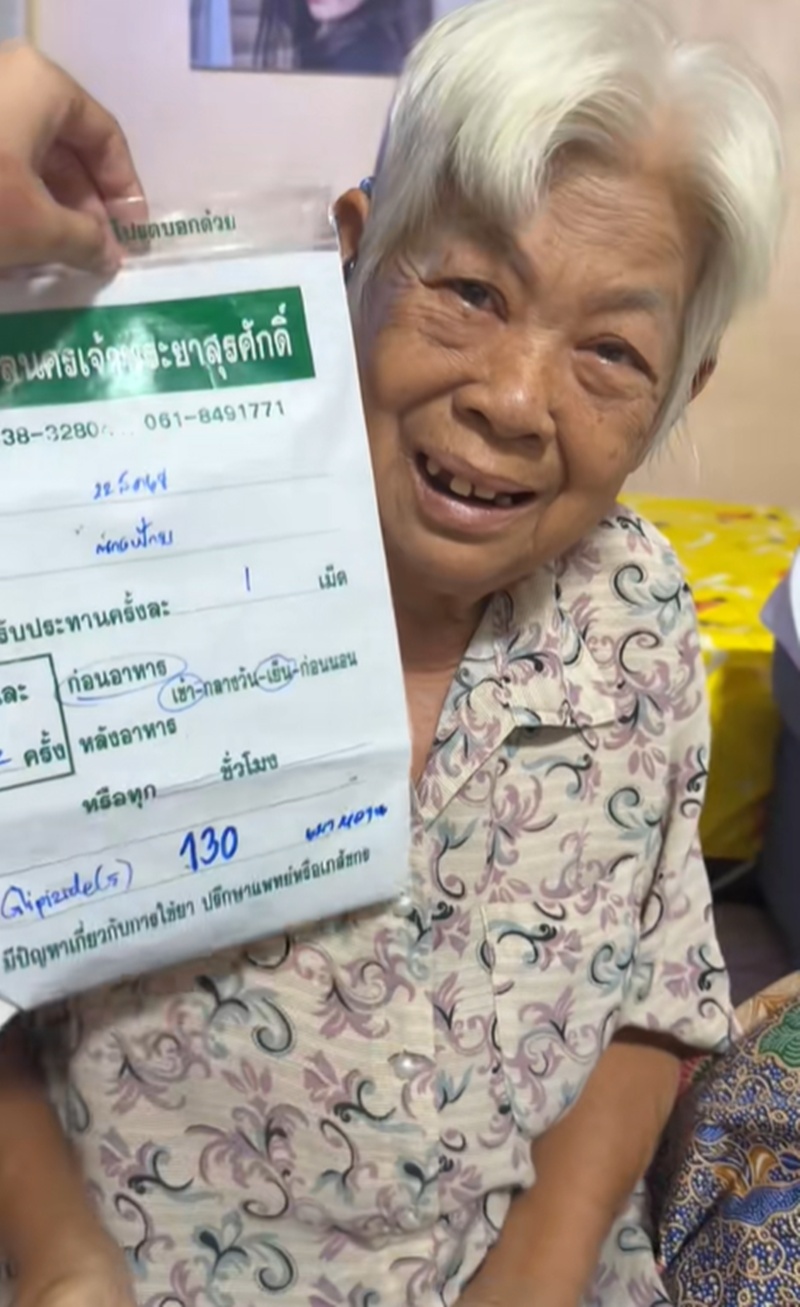 โปรดบอกด้วย
ลนครเจ้าพระยาสุรศักดิ์
38-3280 061-8491771
รับประทานครั้งละ 1 เม็ด
ละ ก่อนอาหาร เช้า-กลางวัน-เย็น-ก่อนนอน
ครั้ง หลังอาหาร
หรือทุก ชั่วโมง
Glipizide(5) 130 เบาหวาน
มีปัญหาเกี่ยวกับการใช้ยา ปรึกษาแพทย์หรือเภสัชกร